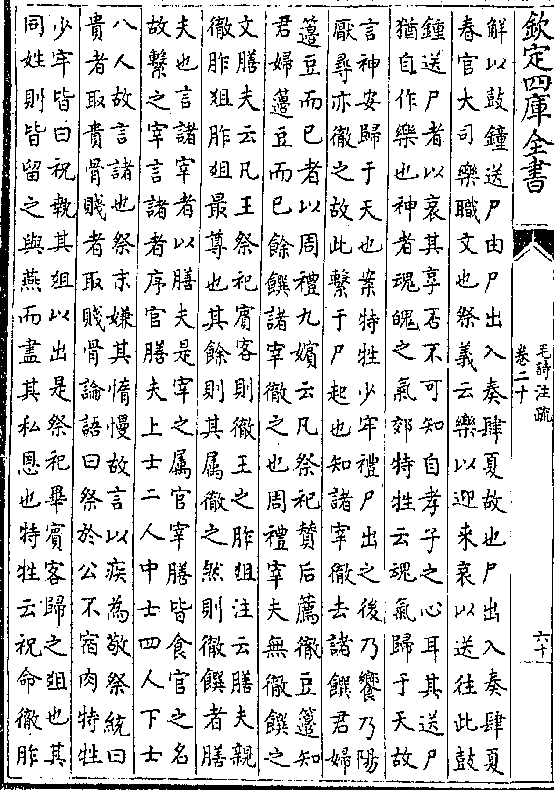 欽定四庫全書
毛詩注疏
卷二十
六十
解以鼓鐘送尸由尸出入奏肆夏故也尸出入奏肆夏
春官大司樂職文也祭義云樂以迎來哀以送往此鼓
鍾送尸者以哀其享否不可知自孝子之心耳其送尸
猶自作樂也神者魂魄之氣郊特牲云魂氣歸于天故
言神安歸于天也案特牲少牢禮尸出之後乃饗乃陽
厭尋亦徹之故此繫于尸起也知諸宰徹去諸饌君婦
籩豆而已者以周禮九嬪云凡祭祀贊后薦徹豆籩知
君婦籩豆而已餘饌諸宰徹之也周禮宰夫無徹饌之
文膳夫云凡王祭祀賓客則徹王之胙俎注云膳夫親
徹胙俎胙俎最尊也其餘則其屬徹之然則徹饌者膳
夫也言諸宰者以膳夫是宰之属官宰膳皆食官之名
故繫之宰言諸者序官膳夫上士二人中士四人下士
八人故言諸也祭末嫌其惰慢故言以疾為敬祭統曰
貴者取貴骨賤者取賤骨論語曰祭於公不宿肉特牲
少牢皆曰祝執其俎以出是祭祀畢賓客歸之俎也其
同姓則皆留之與燕而盡其私恩也特牲云祝命徹胙